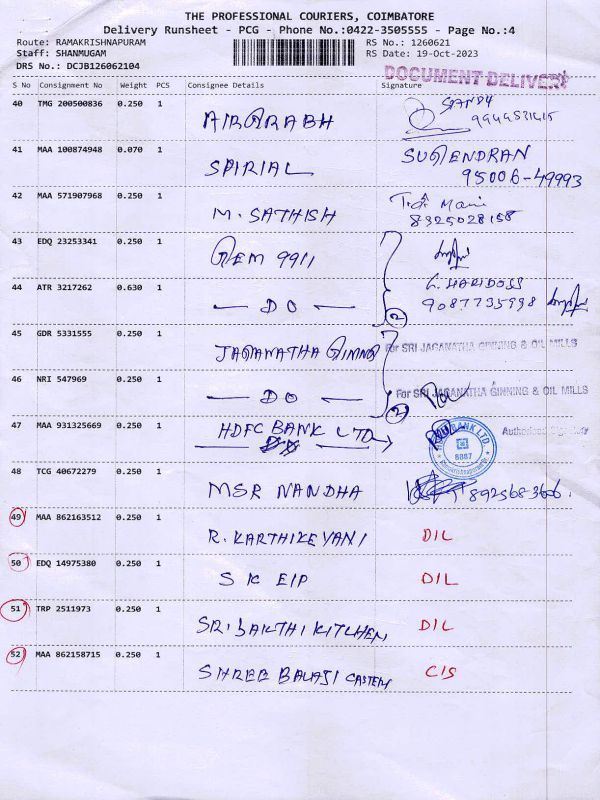 THE PROFESSIONAL COURIERS, COIMBATORE
Delivery Runsheet - PCG - Phone No.:0422-3505555 - Page No.:4
Route: RAMAKRISHNAPURAM RS No.: 1260621
Staff: SHANMUGAM RS Date: 19-Oct-2023
DRS No.: DCJB126062104
DOCUMENT DELIVERY
S No Consignment No Weight PCS Consignee Details Signature
40 TMG 200500836 0.250 1 AIRGRABH SANDY
41 MAA 100874948 0.070 1 SPIRIAL SUGENDRAN
95006-49993
42 MAA 571907968 0.250 1 M. SATHISH
8325028158
43 EDQ 23253341 0.250 1 GEM 9911
44 ATR 3217262 0.630 1 — DO — 2 G. HARIDOSS
9087735998
45 GDR 5331555 0.250 1 JAGANATHA GINNG For SRI JAGANATHA GINNING & OIL MILLS
46 NRI 547969 0.250 1 — DO — 2 For SRI JAGANATHA GINNING & OIL MILLS
47 MAA 931325669 0.250 1 HDFC BANK LTD BANK LTD. 8887 Authorised Signatory
48 TCG 40672279 0.250 1 MSR NANDHA
49 MAA 862163512 0.250 1 R. KARTHIKEYANI DIL
50 EDQ 14975380 0.250 1 S K EIP DIL
51 TRP 2511973 0.250 1 SRI SAKTHI KITCHEN DIL
52 MAA 862158715 0.250 1 SHREE BALAJI CIS